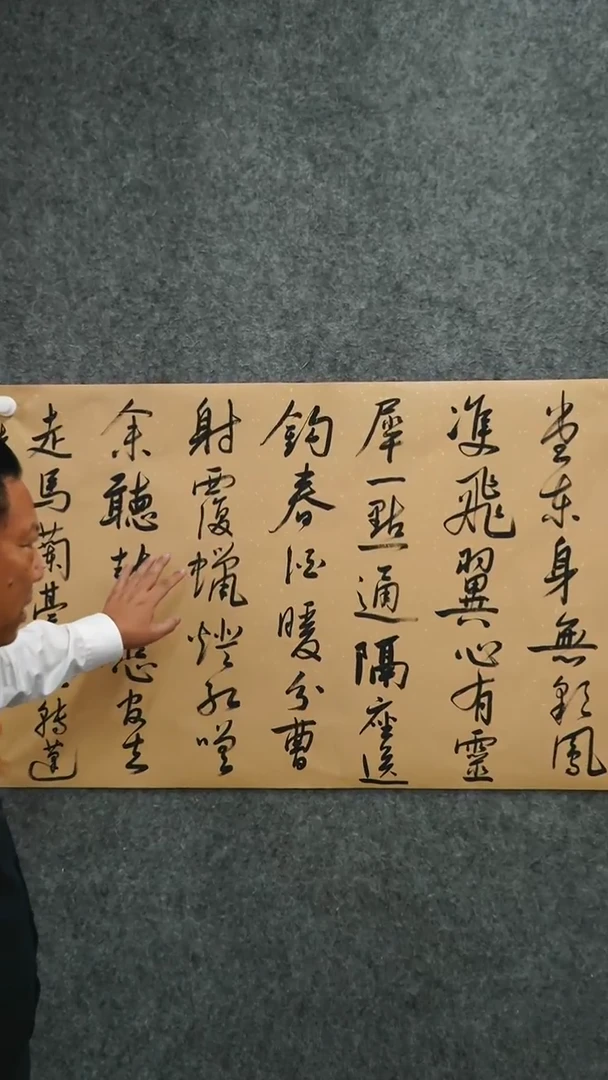 堂東身無彩鳳
雙飛翼心有靈
犀一點通隔座送
鈎春酒暖分曹
射覆蠟燈紅嗟
余聽鼓應官去
走馬蘭臺轉蓬